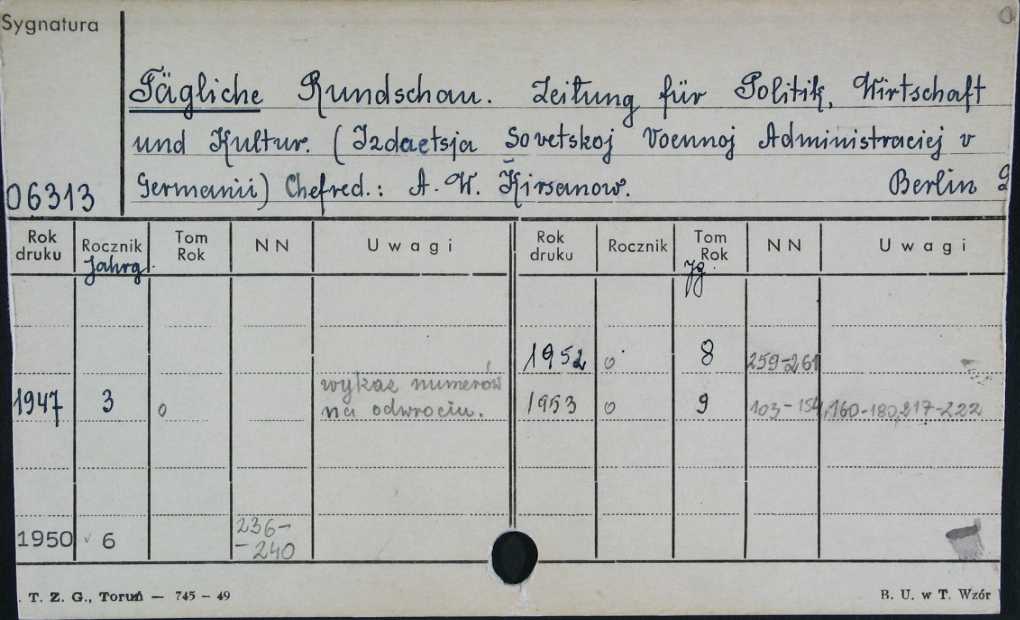 Sygnatura
Tägliche Rundschau. Zeitung für Politik, Wirtschaft
und Kultur. (Izdaetsja Sovetskoj Voennoj Administraciej v
06313 Germanii) Chefred.: A. W. Kirsanow. Berlin
Rok druku Rocznik Tom Rok NN Uwagi Rok druku Rocznik Tom Rok NN Uwagi
Jahrg. Jg.
1952 o 8 259-261
1947 3 o wykaz numerów na odwrociu. 1953 o 9 103-154, 160-180, 217-222
1950 6 236-240
. T. Z. G., Toruń — 745 — 49 B. U. w T. Wzór